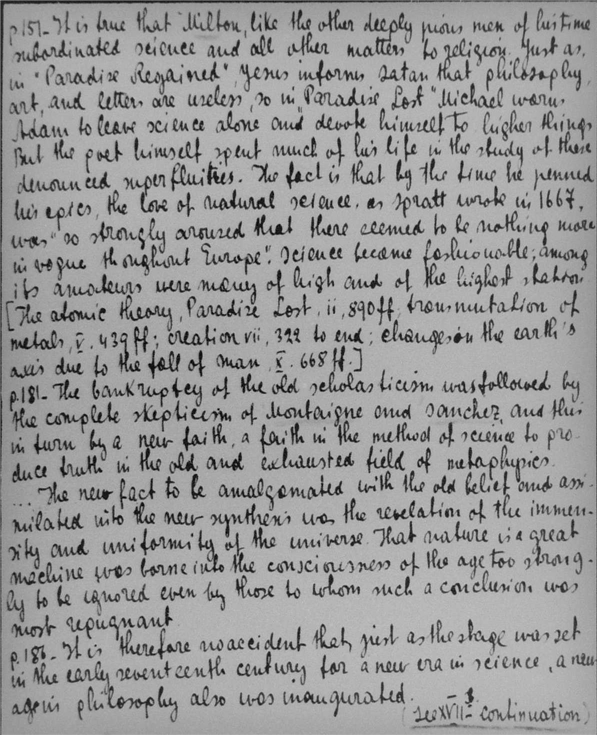 p.157_ It is true that Milton, like the other deeply pious men of his time
subordinated science and all other matters to religion. Just as,
in "Paradise Regained", Jesus informs Satan that philosophy,
art, and letters are useless, so in "Paradise Lost" Michael warns
Adam to leave science alone and devote himself to higher things
But the poet himself spent much of his life in the study of these
denounced superfluities. The fact is that by the time he penned
his epics, the love of natural science, as Spratt wrote in 1667,
was "so strongly aroused that there seemed to be nothing more
in vogue throughout Europe". Science became fashionable; among
its amateurs were many of high and of the highest station
[The atomic theory, Paradise Lost, ii, 890ff; transmutation of
metals, V. 439ff; creation vii, 322 to end; changes on the earth's
axis due to the fall of man, X. 668ff.]
p.181_ The bankruptcy of the old scholasticism was followed by
the complete skepticism of Montaigne and Sanchez, and this
in turn by a new faith, a faith in the method of science to pro-
duce truth in the old and exhausted field of metaphysics.
... The new fact to be amalgamated with the old belief and assi-
milated into the new synthesis was the revelation of the immen-
sity and uniformity of the universe. That nature is a great
machine was borne into the consciousness of the age too strong-
ly to be ignored even by those to whom such a conclusion was
most repugnant.
p.186_ It is therefore no accident that, just as the stage was set
in the early seventeenth century for a new era in science, a new
age in philosophy also was inaugurated.
(see XVII- continuation)